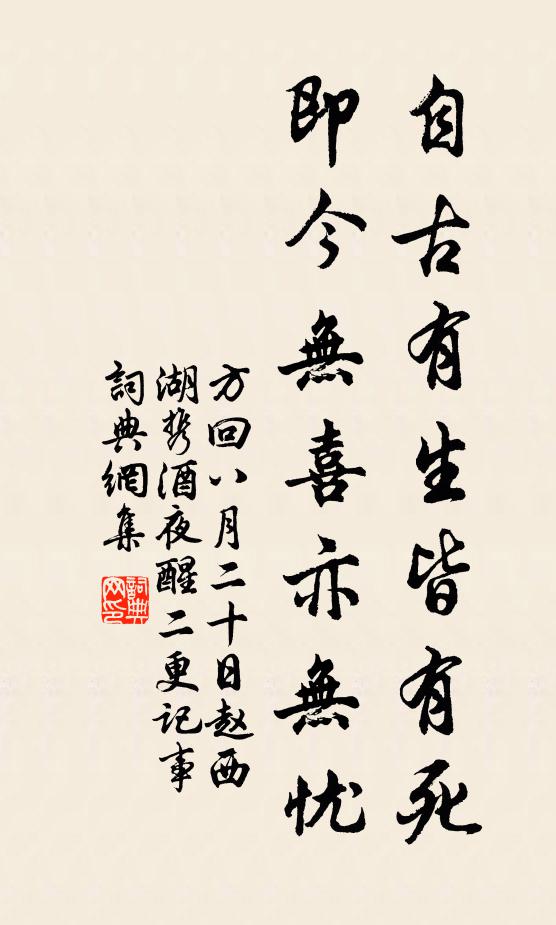 自古有生皆有死
即今無喜亦無忧
方回八月二十日赵西
湖携酒夜醒二更记事
詞典網集
詞典网印